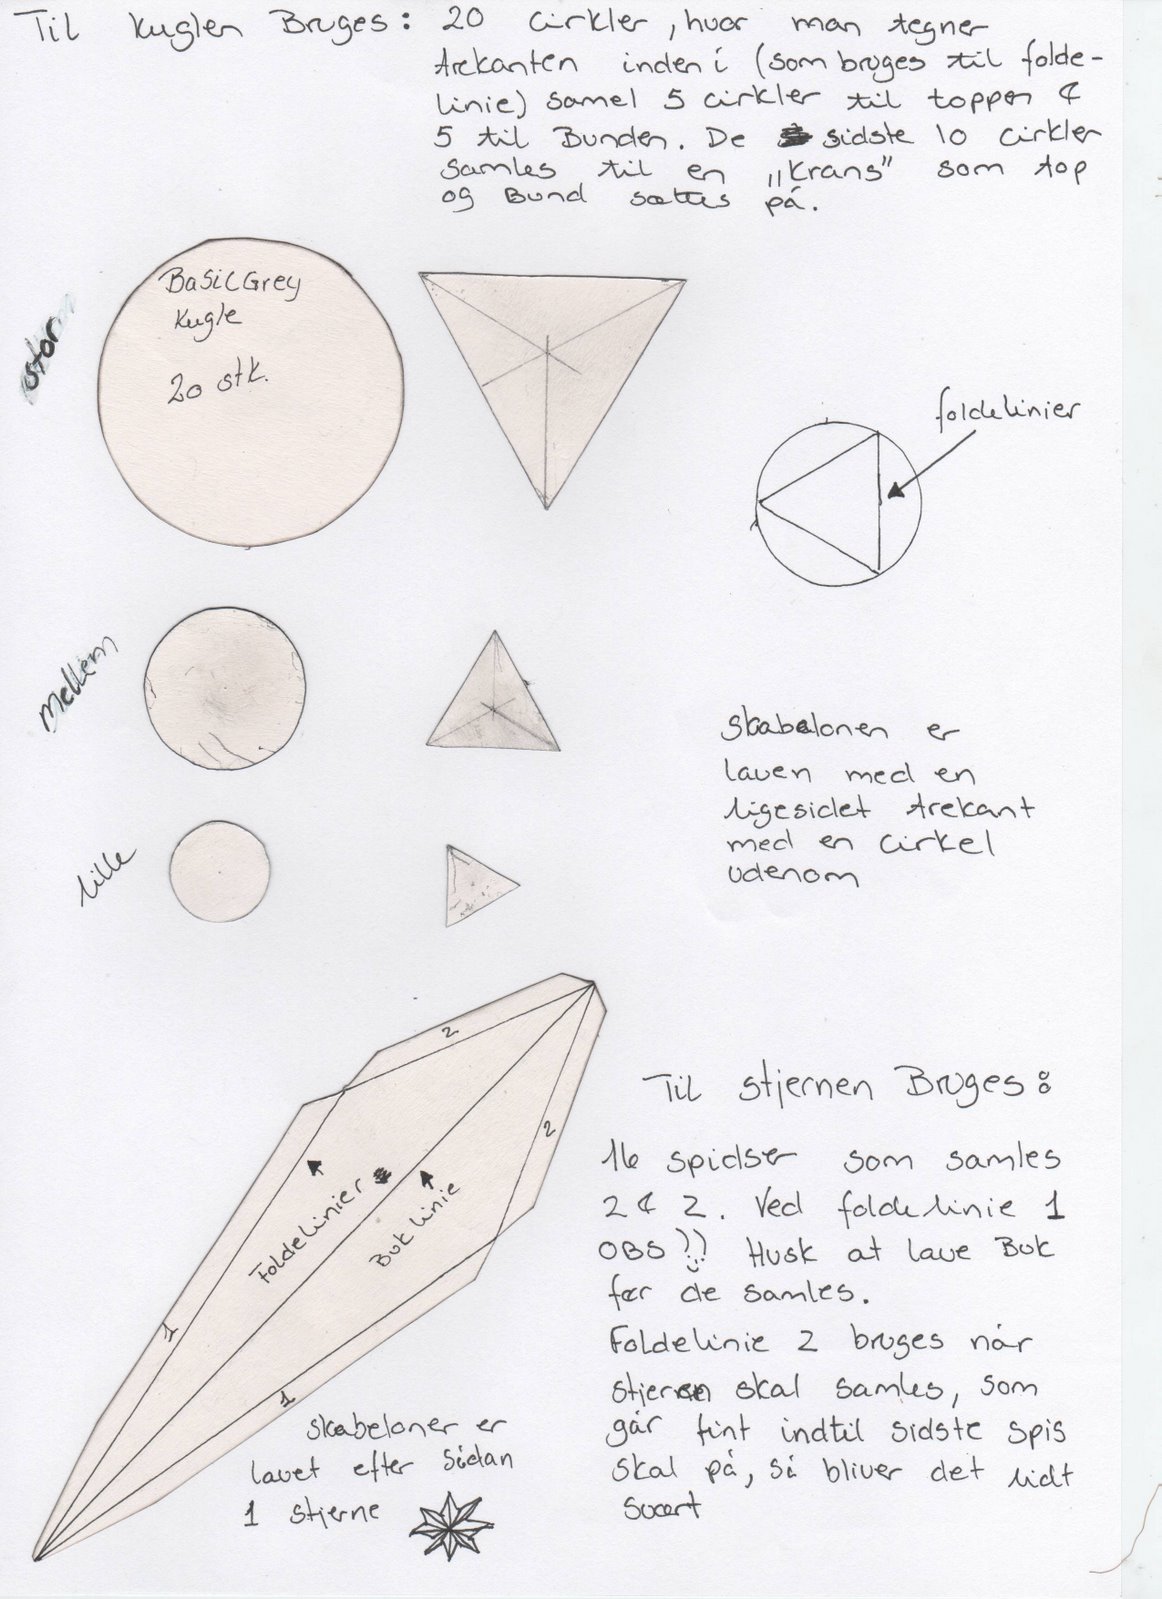 Til Kuglen Bruges: 20 cirkler, hvor man tegner
trekanten inden i (som bruges til folde-
linie) samel 5 cirkler til toppen &
5 til Bunden. De sidste 10 cirkler
samles til en „Krans" som top
og Bund sættes på.
stor
BasicGrey
Kugle
20 stk.
foldelinier
mellem
skabelonen er
laven med en
ligesidet trekant
med en cirkel
udenom
lille
2
2
Foldelinier
Buk linie
1
1
Til stjernen Bruges:
16 spidser som samles
2 & 2. Ved foldelinie 1
OBS !! Husk at lave Buk
før de samles.
Foldelinie 2 bruges når
stjernen skal samles, som
går fint indtil sidste spis
skal på, så bliver det lidt
svært
skabeloner er
lavet efter sådan
1 stjerne